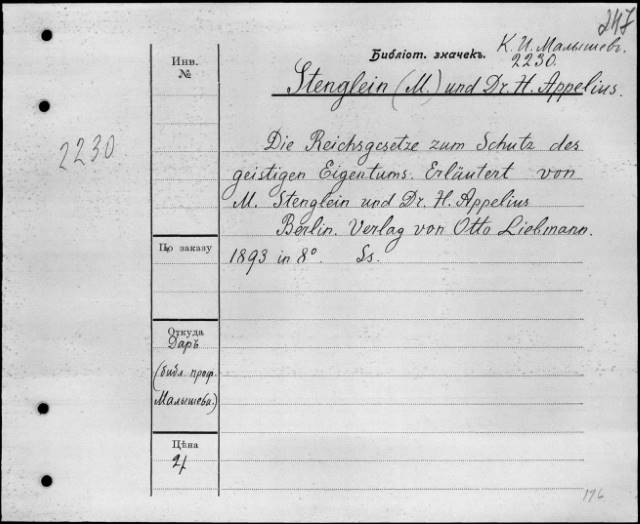 247
Библіот. значекъ. К. И. Малышевъ.
2230.
Инв.
№
Stenglein (M.) und Dr. H. Appelius.
2230
Die Reichsgesetze zum Schutz des
geistigen Eigentums. Erläutert von
M. Stenglein und Dr. H. Appelius
Berlin. Verlag von Otto Liebmann.
По заказу
1893 in 8°. Ss.
Откуда
Даръ
(библ. проф.
Малышева.)
Цѣна
176